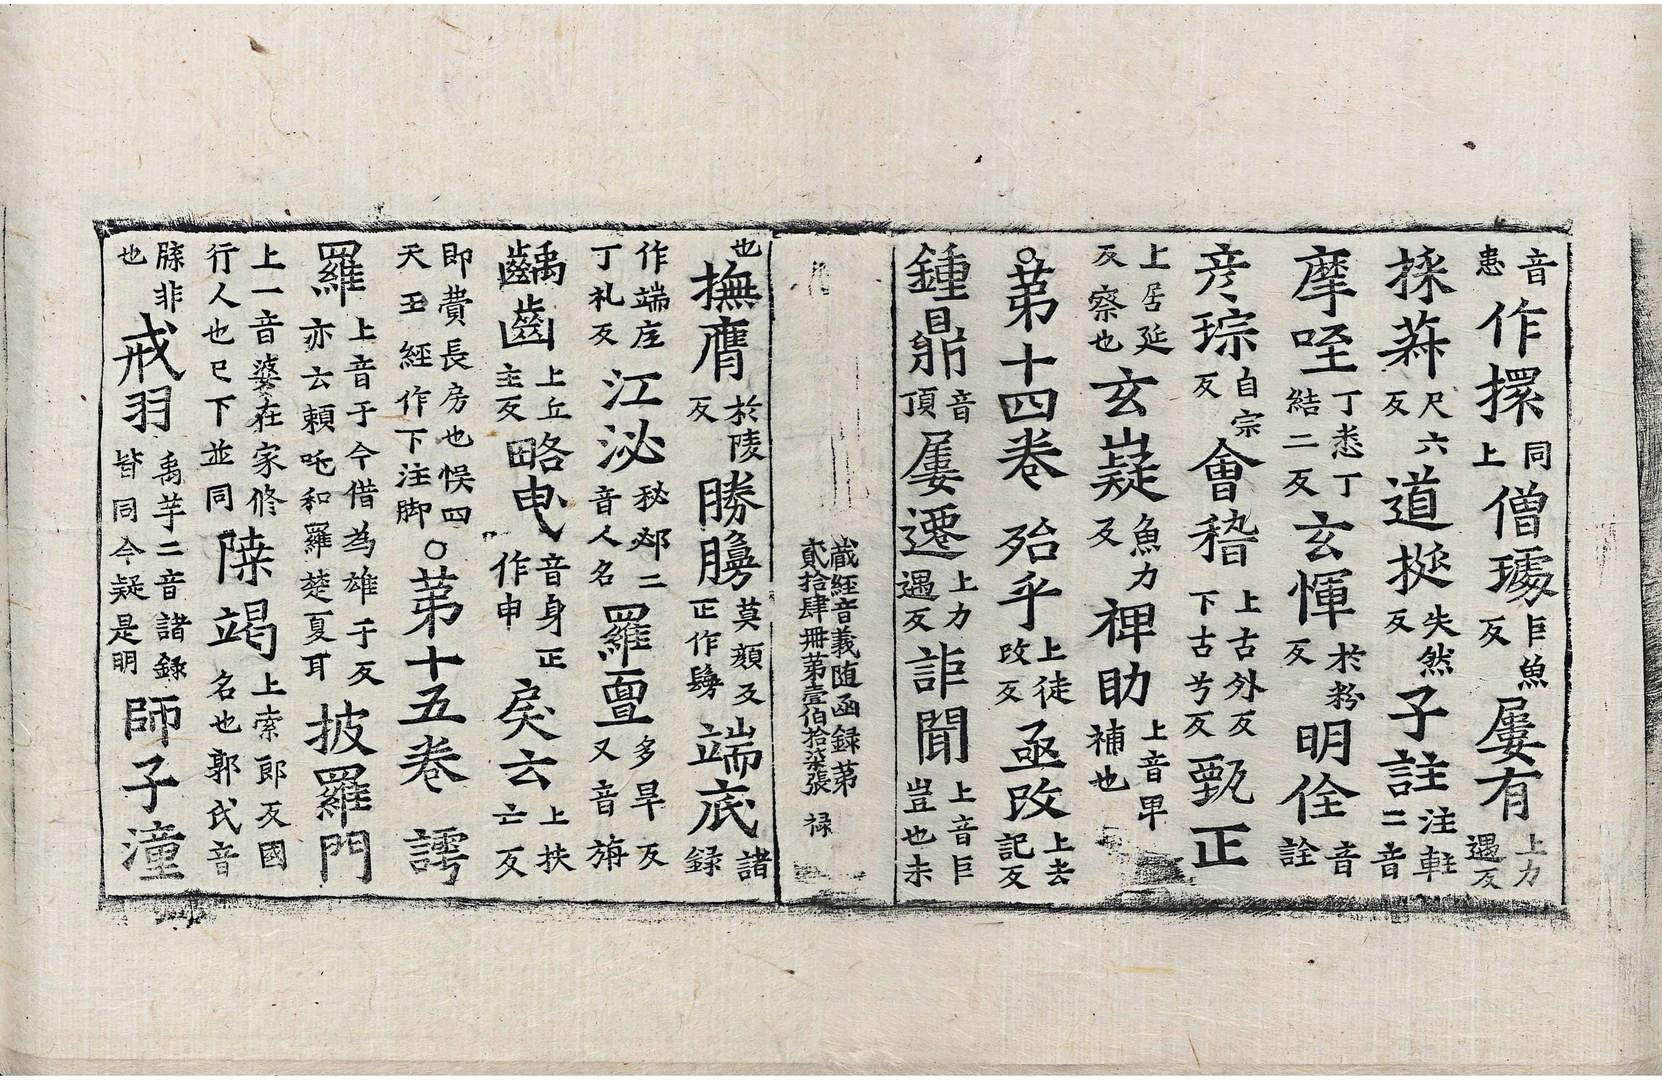 音患作摞同上僧璩巨魚反屢有上力遇反
採菻尺六反道挻失然反子註注軴二音
摩咥丁悉丁結二反玄惲於粉反明佺音詮
彦琮自宗反會稽上古外反下古兮反甄正
上居延反察也玄嶷魚力反裨助上音卑補也
○苐十四卷殆乎上徒改反亟改上去記反
鍾䀩音頂屢遷上力遇反詎聞上音巨豈也未
藏經音義随函録苐貳拾肆冊苐壹伯拾柒張 禄
也撫膺於陵反勝臱莫顔反正作鬘端底諸録
作端庄丁礼反江泌秘邲二音人名羅亶多旱反又音旃
齲齒上丘主反略曳音身正作申戾云上扶亡反
即費長房也悮四天王經作下注脚○苐十五卷諤
羅上音于今借為雄于反亦云頼吒和羅楚夏耳披羅門
上一音婆在家修行人也巳下並同陖竭上索郎反國名也郭氏音
䏽非也戒羽禹芋二音諸録皆同今疑是明師子潼